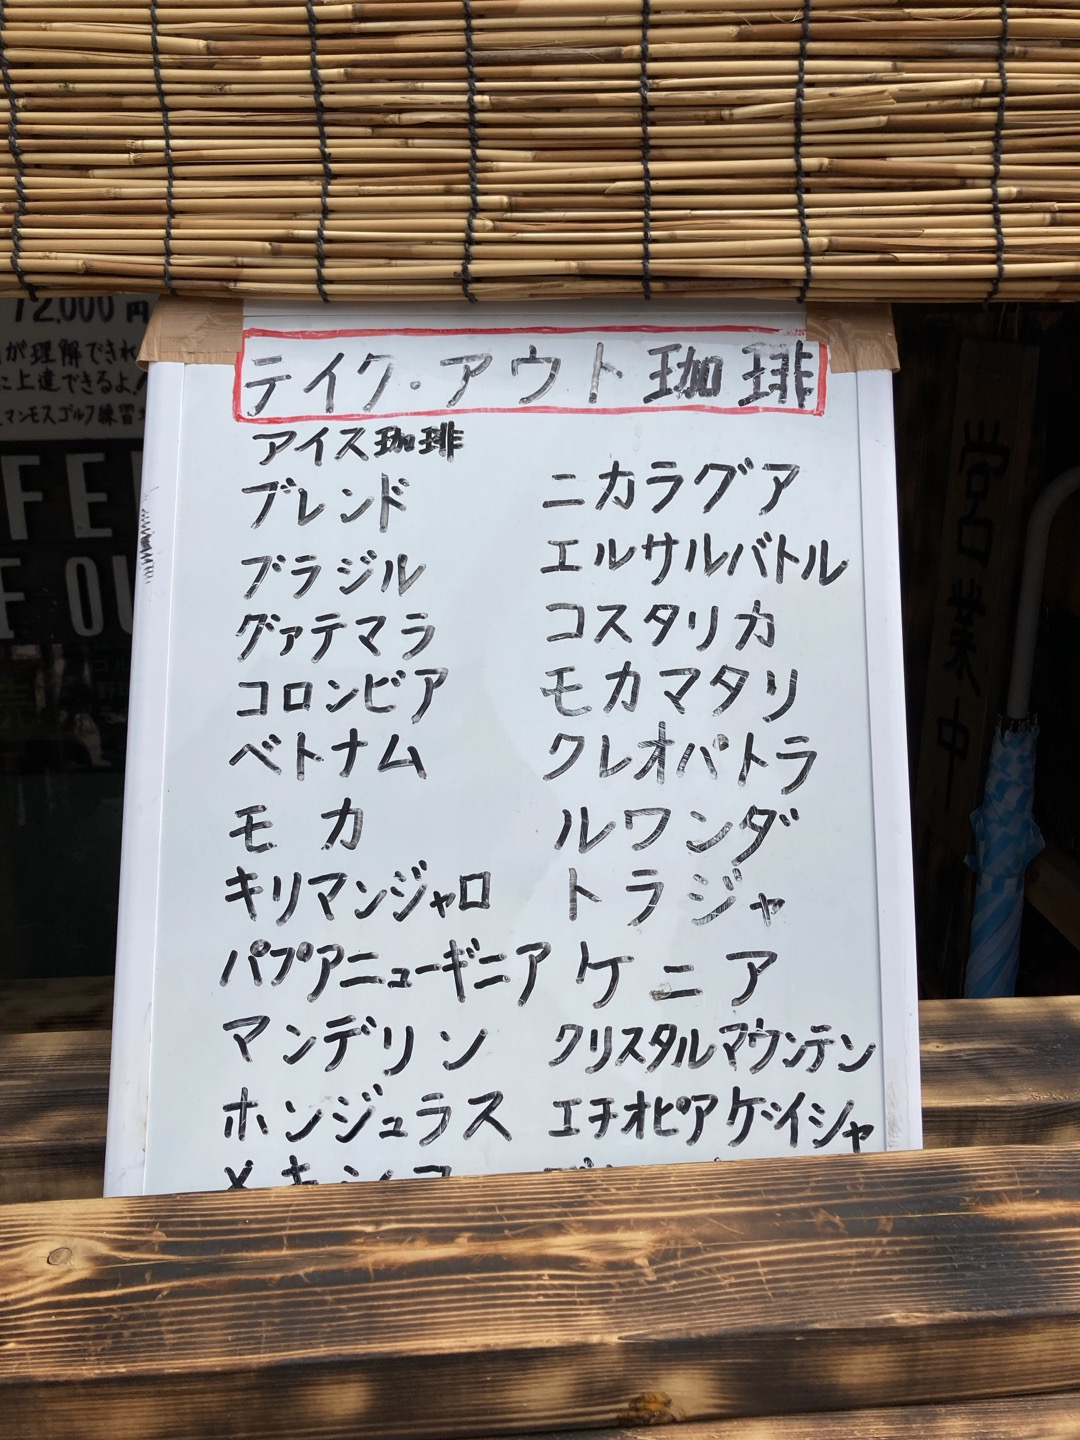 テイク・アウト珈琲
アイス珈琲
ブレンド
ブラジル
グァテマラ
コロンビア
ベトナム
モカ
キリマンジャロ
パプアニューギニア
マンデリン
ホンジュラス
ニカラグア
エルサルバトル
コスタリカ
モカマタリ
クレオパトラ
ルワンダ
トラジャ
ケニア
クリスタルマウンテン
エチオピアゲイシャ
72,000円
が理解できれ
に上達できるよ!
マンモスゴルフ練習
営業中